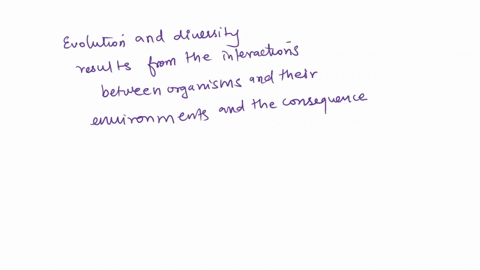 Evolution and diversity
results from the interactions
between organisms and their
environments and the consequence